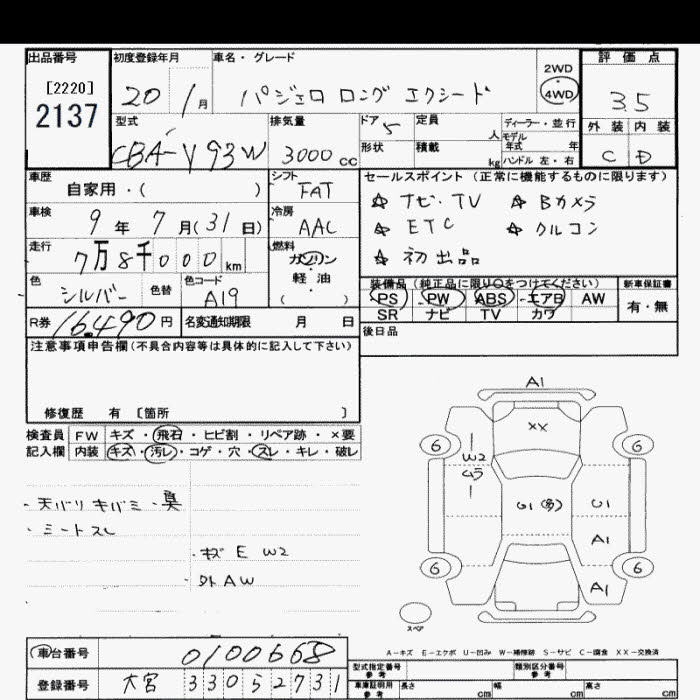 出品番号 初度登録年月 車名・グレード 2WD 評価点
[2220]
2137 20 1月 パジェロ ロング エクシード 4WD 3.5
型式 排気量 ドア 5 定員 人 ディーラー・並行 外装 内装
モデル年式 年
CBA-V93W 3000cc 形状 積載 kg ハンドル 左・右 C D
車歴 自家用・( ) シフト FAT セールスポイント(正常に機能するものに限ります)
☆ナビ・TV ☆Bカメラ
車検 9年7月(31日) 冷房 AAC ☆ETC ☆クルコン
走行 7万8千000km 燃料 ガソリン・軽油・( ) ☆初出品
色 シルバー 色替 色コード A19 装備品(純正品に限り○をつけてください) 新車保証書
PS PW ABS エアB AW 有・無
R券 16,490円 名変通知期限 月 日 SR ナビ TV カワ
後日品
注意事項申告欄(不具合内容等は具体的に記入して下さい)
修復歴 有 [箇所 ]
検査員 FW キズ・飛石・ヒビ割・リペア跡・×要
記入欄 内装 キズ・汚レ・コゲ・穴・スレ・キレ・破レ
・天バリ キバミ・臭
・シートスレ
・キズ E W2
・外AW
A1
XX
6 6
W2
ムラ
U1(多) U1
A1
6 6
A1
スペア
A-キズ E-エクボ U-凹み W-補修跡 S-サビ C-腐食 XX-交換済
車台番号 0100668
型式指定番号 参考 類別区分番号 参考
登録番号 大宮 330 5 2731 車庫証明用 参考 長さ cm 幅 cm 高さ cm